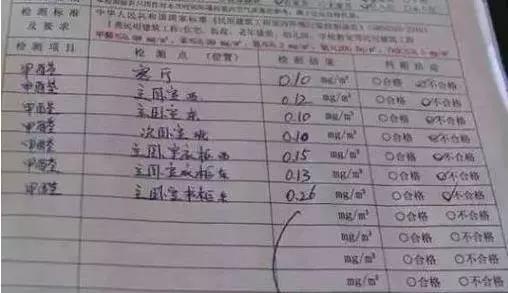 检测标准
及要求
中华人民共和国国家标准《民用建筑工程室内环境
Ⅰ类民用建筑工程:住宅、医院、老年建筑、幼儿园、学校教室等民用建筑工程
检测项目 检测点(位置) 检测结果 判定结论
甲醛 客厅 0.10 mg/m³ ○合格 ☑不合格
甲醛 主卧室西 0.12 mg/m³ ○合格 ☑不合格
甲醛 主卧室东 0.10 mg/m³ ○合格 ☑不合格
甲醛 次卧室 0.10 mg/m³ ○合格 ☑不合格
甲醛 主卧室衣柜西 0.15 mg/m³ ○合格 ☑不合格
甲醛 主卧室衣柜东 0.13 mg/m³ ○合格 ☑不合格
甲醛 主卧室书柜东 0.26 mg/m³ ○合格 ☑不合格
mg/m³ ○合格 ○不合格
mg/m³ ○合格 ○不合格
mg/m³ ○合格 ○不合格
mg/m³ ○合格 ○不合格